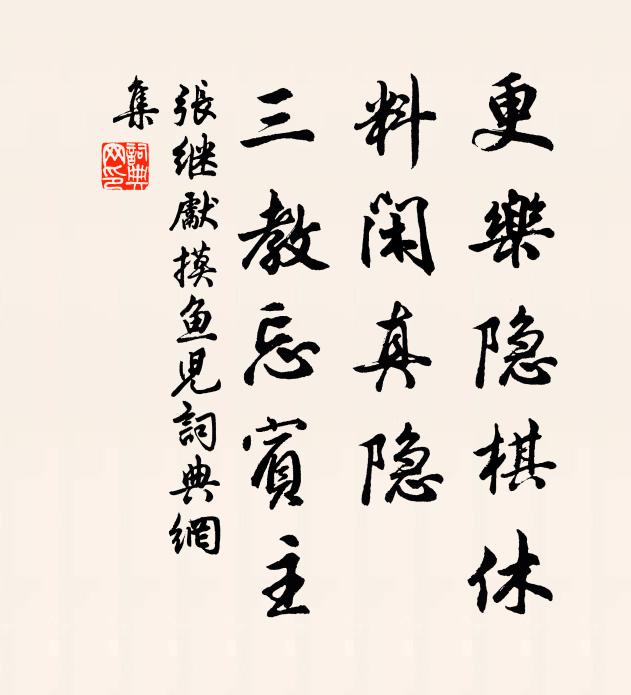 更樂隐棋休
料闲真隐
三教忘賓主
張继獻摸鱼児詞典網
集
詞典网印